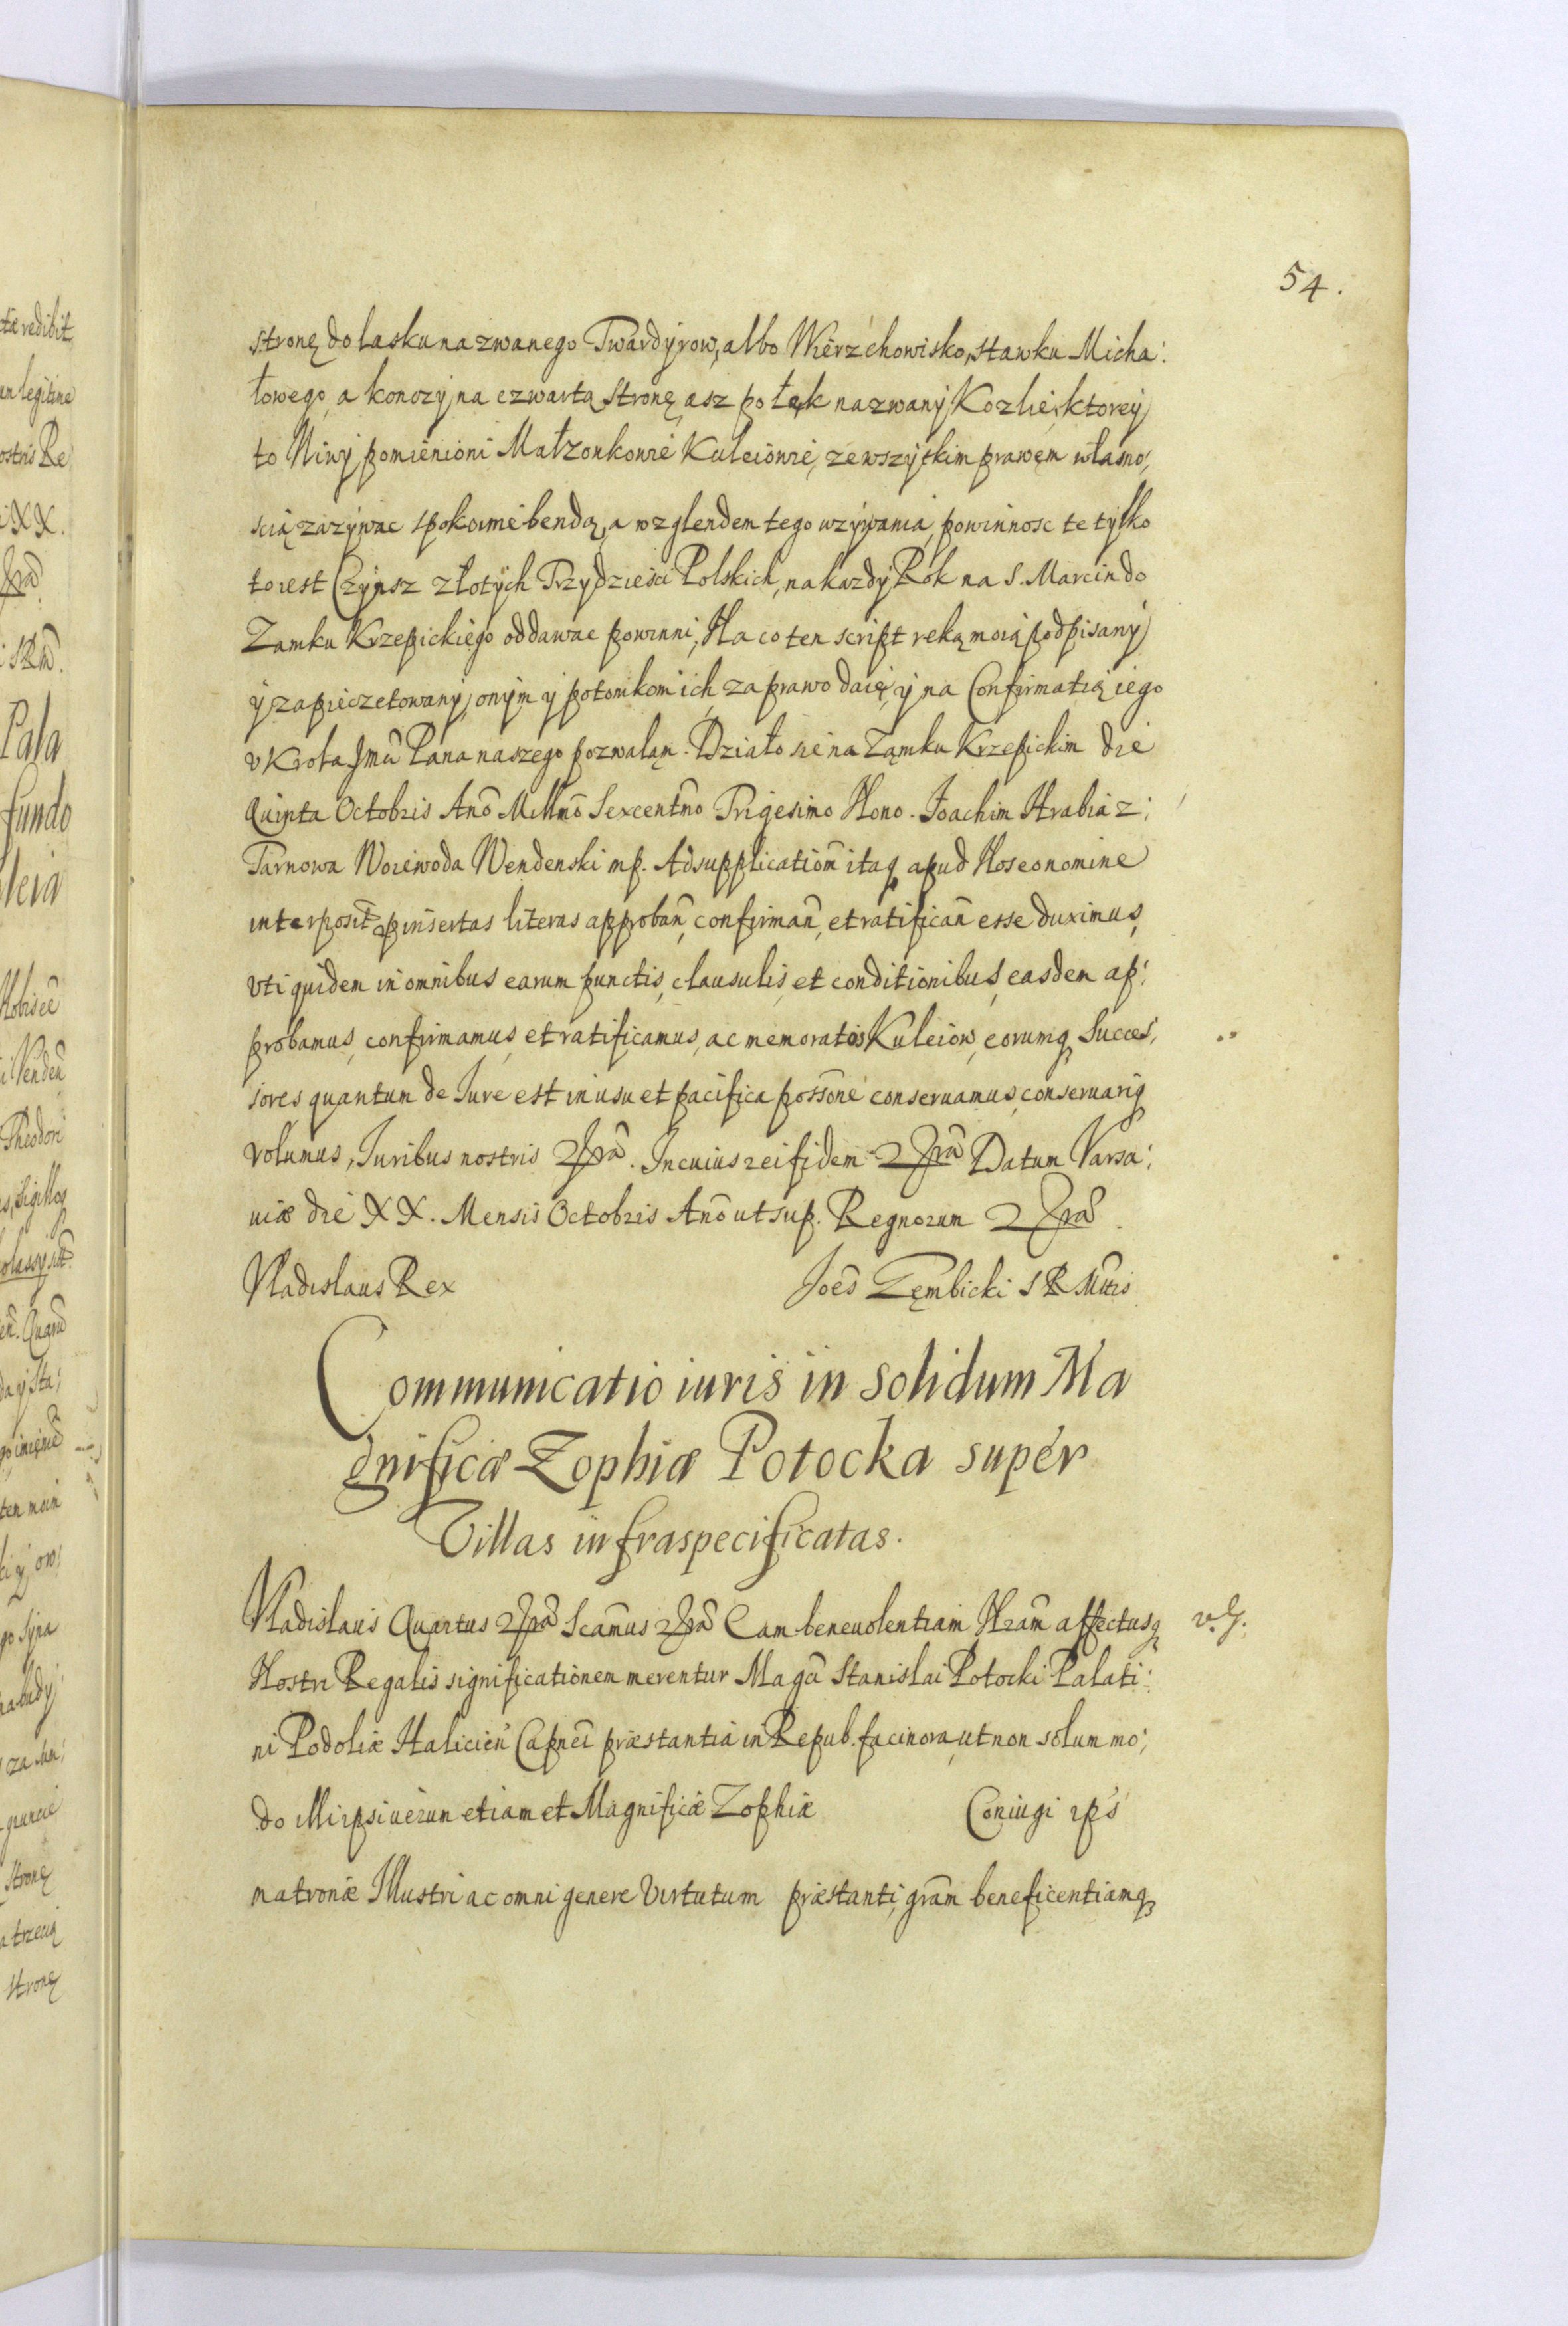 54.
stronę do lasku nazwanego Twardyrow, albo Wierzchowisko, stawku Micha:
łowego, a konczy na czwartą stronę asz po łęk nazwany Kozlie, ktorey
to Niwy pomienioni Małzonkowie Kuleiowie, ze wszytkim prawem własno:
scią zazywac spokoinie bendą, a wzglendem tego uzywania, powinnosc te tylko
to iest Czynsz złotych Trzydziesci Polskich, na kazdy Rok na S. Marcin do
Zamku Krzepickiego oddawac powinni, Na co ten script reką moią podpisany
y zapieczetowany, onym y potomkom ich, za prawo daię, y na Confirmatią iego
v Krola Jmci Pana naszego pozwalam. Działo sie na Zamku Krzepickim die
Quinta Octobris Anō Millmō Sexcentmō Trigesimo Nono. Joachim Hrabia z:
Tarnowa Woiewoda Wendenski mp. Ad supplicationē itaq apud Nos eo nomine
interposit pinsertas literas approban̄, confirman̄, et ratifican̄ esse duximus,
vti quidem in omnibus earum punctis, clausulis, et conditionibus, easdem ap:
probamus, confirmamus, et ratificamus, ac memoratos Kuleiow, eorumq Succes:
sores quantum de Iure est in usu et pacifica possōne conseruamus, conseruariq
volumus, Iuribus nostris 2fra. In cuius rei fidem 2fra Datum Varsa:
uiæ die XX. Mensis Octobris Anō ut sup. Regnorum 2fra.
Vladislaus Rex Joēs Zęmbicki S R Mttis
Communicatio iuris in solidum Ma
gnificæ Zophiæ Potocka super
Villas infraspecificatas.
Vladislaus Quartus 2fra Scamus 2fra Eam beneuolentiam Nram affectusq v. g.
Nostri Regalis significationem merentur Magci Stanislai Potocki Palati:
ni Podoliæ Halicien Capnei præstantia in Repub. facinora, ut non solum mo:
do Illi ipsi uerum etiam et Magnificæ Zophiæ Coniugi ips
matronæ Illustri ac omni genere Virtutum præstanti, gram beneficentiamq